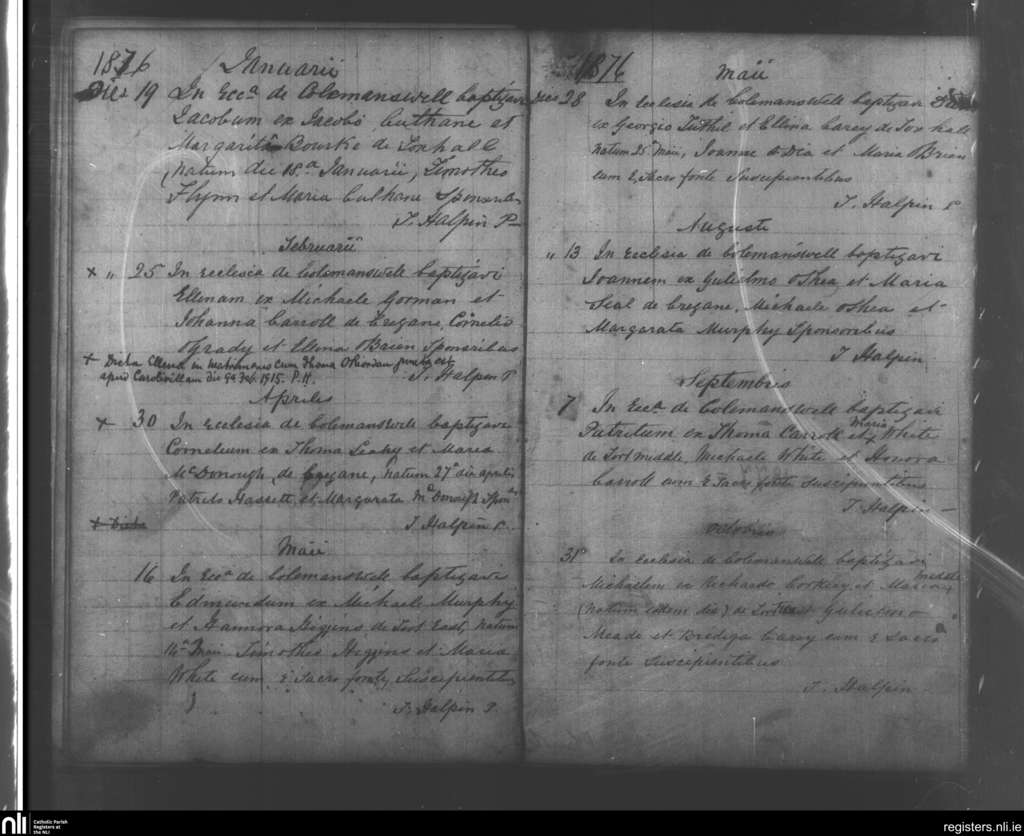 1876 Januarii
Dies 19 In Ecca de Colemanswell baptizavi
Jacobum ex Jacobo Culhane et
Margarita Bourke de Foxhall
(natum die 18.a Januarii, Timotheo
Flynn et Maria Culhane Sponsoribus
T. Halpin P
Februarii
x " 25 In ecclesia de Colemanswell baptizavi
Ellenam ex Michaele Gorman et
Johanna Carroll de Cregane, Cornelio
OGrady et Ellena OBrien Sponsribus
x Dicta Ellena in matrimonio cum Thoma ORiordan juncta est
apud Carolivillam die 9a Feb. 1915. P.H.
T. Halpen P
Apriles
x 30 In ecclesia de Colemanswell baptizavi
Cornelium ex Thoma Leahy et Maria
McDonough, de Cregane, natum 27a die aprilis
Patricio Hassett, et Margarata McDonough Spon
x Dicta
T. Halpin P.
Maii
16 In Ecca de Colemanswell baptizavi
Edmundum ex Michaele Murphy
et Hannora Higgens de Fort East, natum
14a Maii Timotheo Higgens et Maria
White cum e Sacro fonte, Suscipientibus
T. Halpin P.
1876
Maii
Dies 28 In ecclesia de Colemanswell baptizavi
ex Georgio Tuthil et Ellena Carey de Foxhall
natum 25a Maii, Joanne O Dea et Maria OBrien
eum e Sacro fonte Suscipientibus
T. Halpin P
Auguste
" 13 In ecclesia de Colemanswell baptizavi
Joannem ex Gulielmo OShea et Maria
Seal de Cregane, Michaele OShea et
Margarata Murphy Sponsoribus
T Halpin
Septembris
7 In Ecca de Colemanswell baptizavi
Patritum ex Thoma Carroll et Maria White
de Fort middle, Michaele White et Honora
Carroll eum e Sacro fonte Suscipientibus
T. Halpin
Octobris
31 In ecclesia de Colemanswell baptizavi
Michaelem ex Richardo Corkery et Maria
(natum eodem die) de Fort middle Gulielmo
Meade et Bridgida Carey eum e Sacro
fonte Suscipientibus
T. Halpin
nli Catholic Parish
Registers at
the NLI
registers.nli.ie